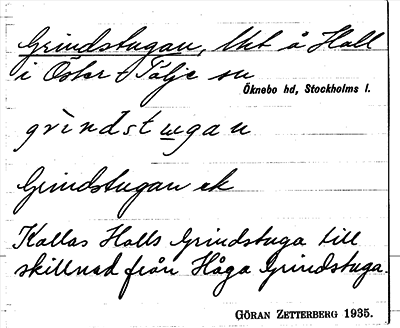 Grindstugan, lht å Hall
i Öster-Tälje sn
Öknebo hd, Stockholms l.
grìndstugan
Grindstugan ek
Kallas Halls Grindstuga till
skillnad från Håga Grindstuga.
GÖRAN ZETTERBERG 1935.